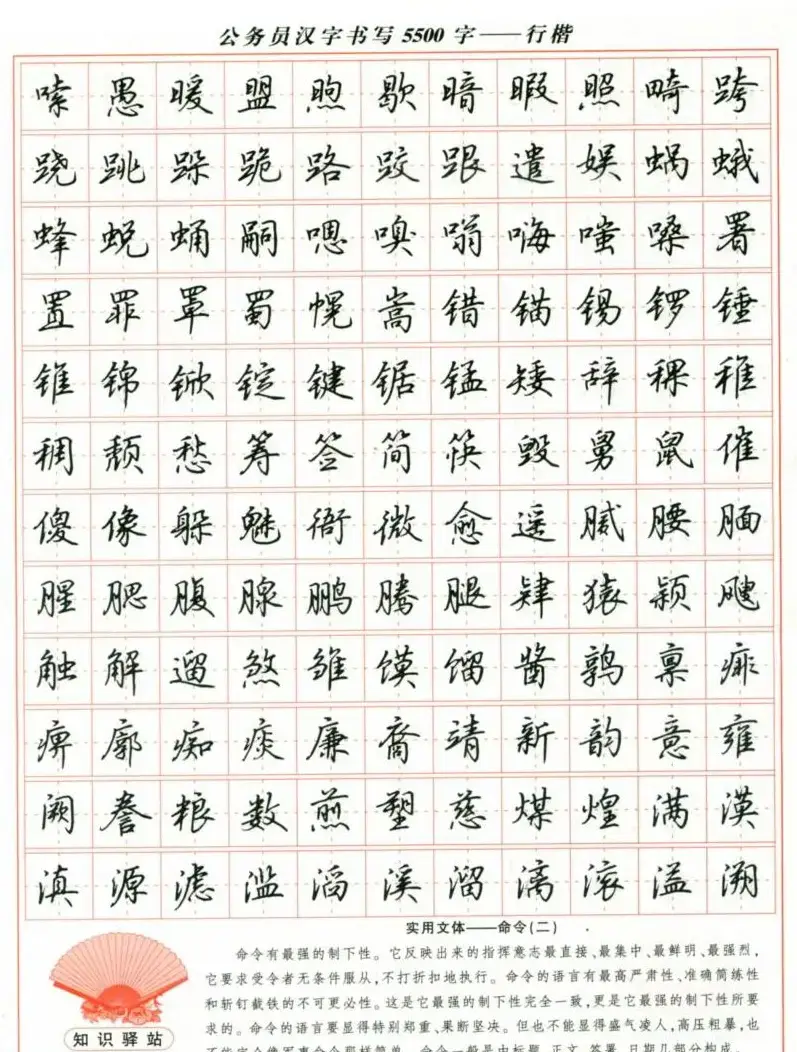 公务员汉字书写5500字——行楷
嗉愚暖盟煦歇暗暇照畸跨
跷跳跺跪路跤跟遣娱蜗蛾
蜂蜕蛹嗣嗯嗅嗡嗨嗤嗓署
置罪罩蜀幌嵩错锚锡锣锤
锥锦锨锭键锯锰矮辞稞稚
稠颓愁筹签简筷毁舅鼠催
傻像躲魅衙微愈遥腻腰腼
腥腮腹腺鹏腾腿肄猿颖飕
触解遛煞雏馍馏酱鹑禀痱
痹廓痴痰廉裔靖新韵意雍
阙誊粮数煎塑慈煤煌满漠
滇源滤滥滔溪溜漓滚溢溯
实用文体——命令(二)
命令有最强的制下性。它反映出来的指挥意志最直接、最集中、最鲜明、最强烈,
它要求受令者无条件服从,不打折扣地执行。命令的语言有最高严肃性、准确简练性
和斩钉截铁的不可更必性。这是它最强的制下性完全一致,更是它最强的制下性所要
求的。命令的语言要显得特别郑重、果断坚决。但也不能显得盛气凌人,高压粗暴,也
知识驿站